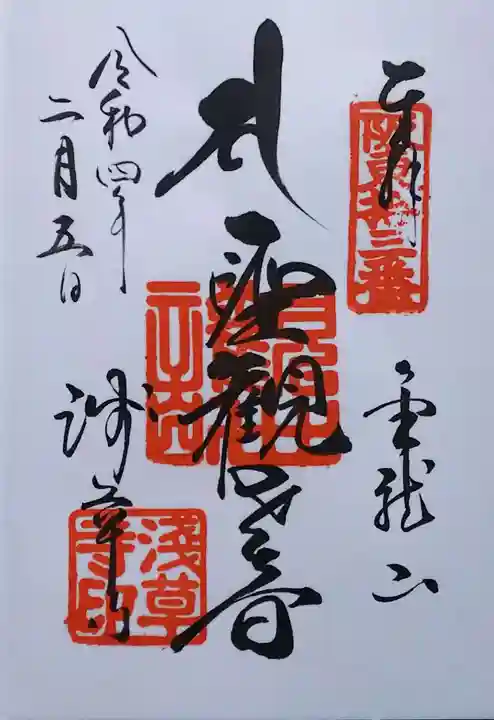 奉拝
阪東十三番
金龍山
聖観音
令和四年
二月五日
浅草寺
浅草寺印